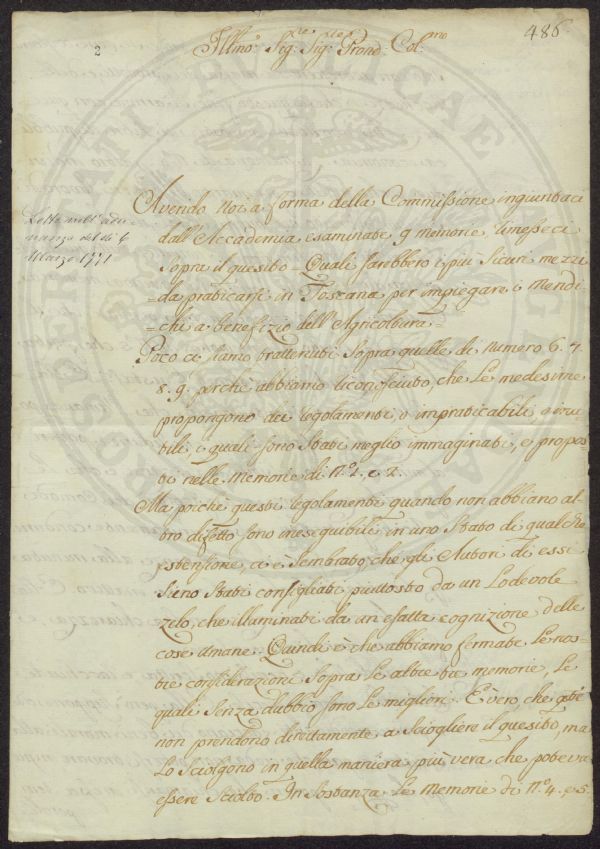 486.
2
Illmo. Sig:re Sig:re Prond: Col:mo
Letta nell'adu-
nanza del dì 6
Marzo 1771
Avendo Noi a forma della Commissione ingiuntaci
dall'Accademia esaminate 9 memorie rimesseci
Sopra il quesito = Quali sarebbero i più Sicuri mezzi
=da praticarsi in Toscana per impiegare i Mendi-
=chi a benefizio dell'Agricoltura=
Poco ci siamo trattenuti Sopra quelle di numero 6. 7.
8. 9. perchè abbiamo riconosciuto, che Le medesime
propongono dei regolamenti, o impraticabili, o inu-
tili, i quali sono Stati meglio immaginati, e propos-
ti nelle Memorie di N.o 1. e 2.
Ma poichè questi regolamenti quando non abbiano al-
tro difetto sono ineseguibili in uno Stato di qualche
estensione, ci è Sembrato che gli Autori di essi
Sieno Stati consigliati piuttosto da un Lodevole
zelo, che illuminati da un esatta cognizione delle
cose umane. Quindi è che abbiamo fermate Le nos-
tre considerazioni Sopra Le altre tre memorie, Le
quali Senza dubbio sono Le migliori. È vero, che
non prendono direttamente a Sciogliere il quesito, ma
Lo Sciolgono in quella maniera più vera che poteva
essere Sciolto. In Sostanza Le Memorie di N.o 4. e 5.